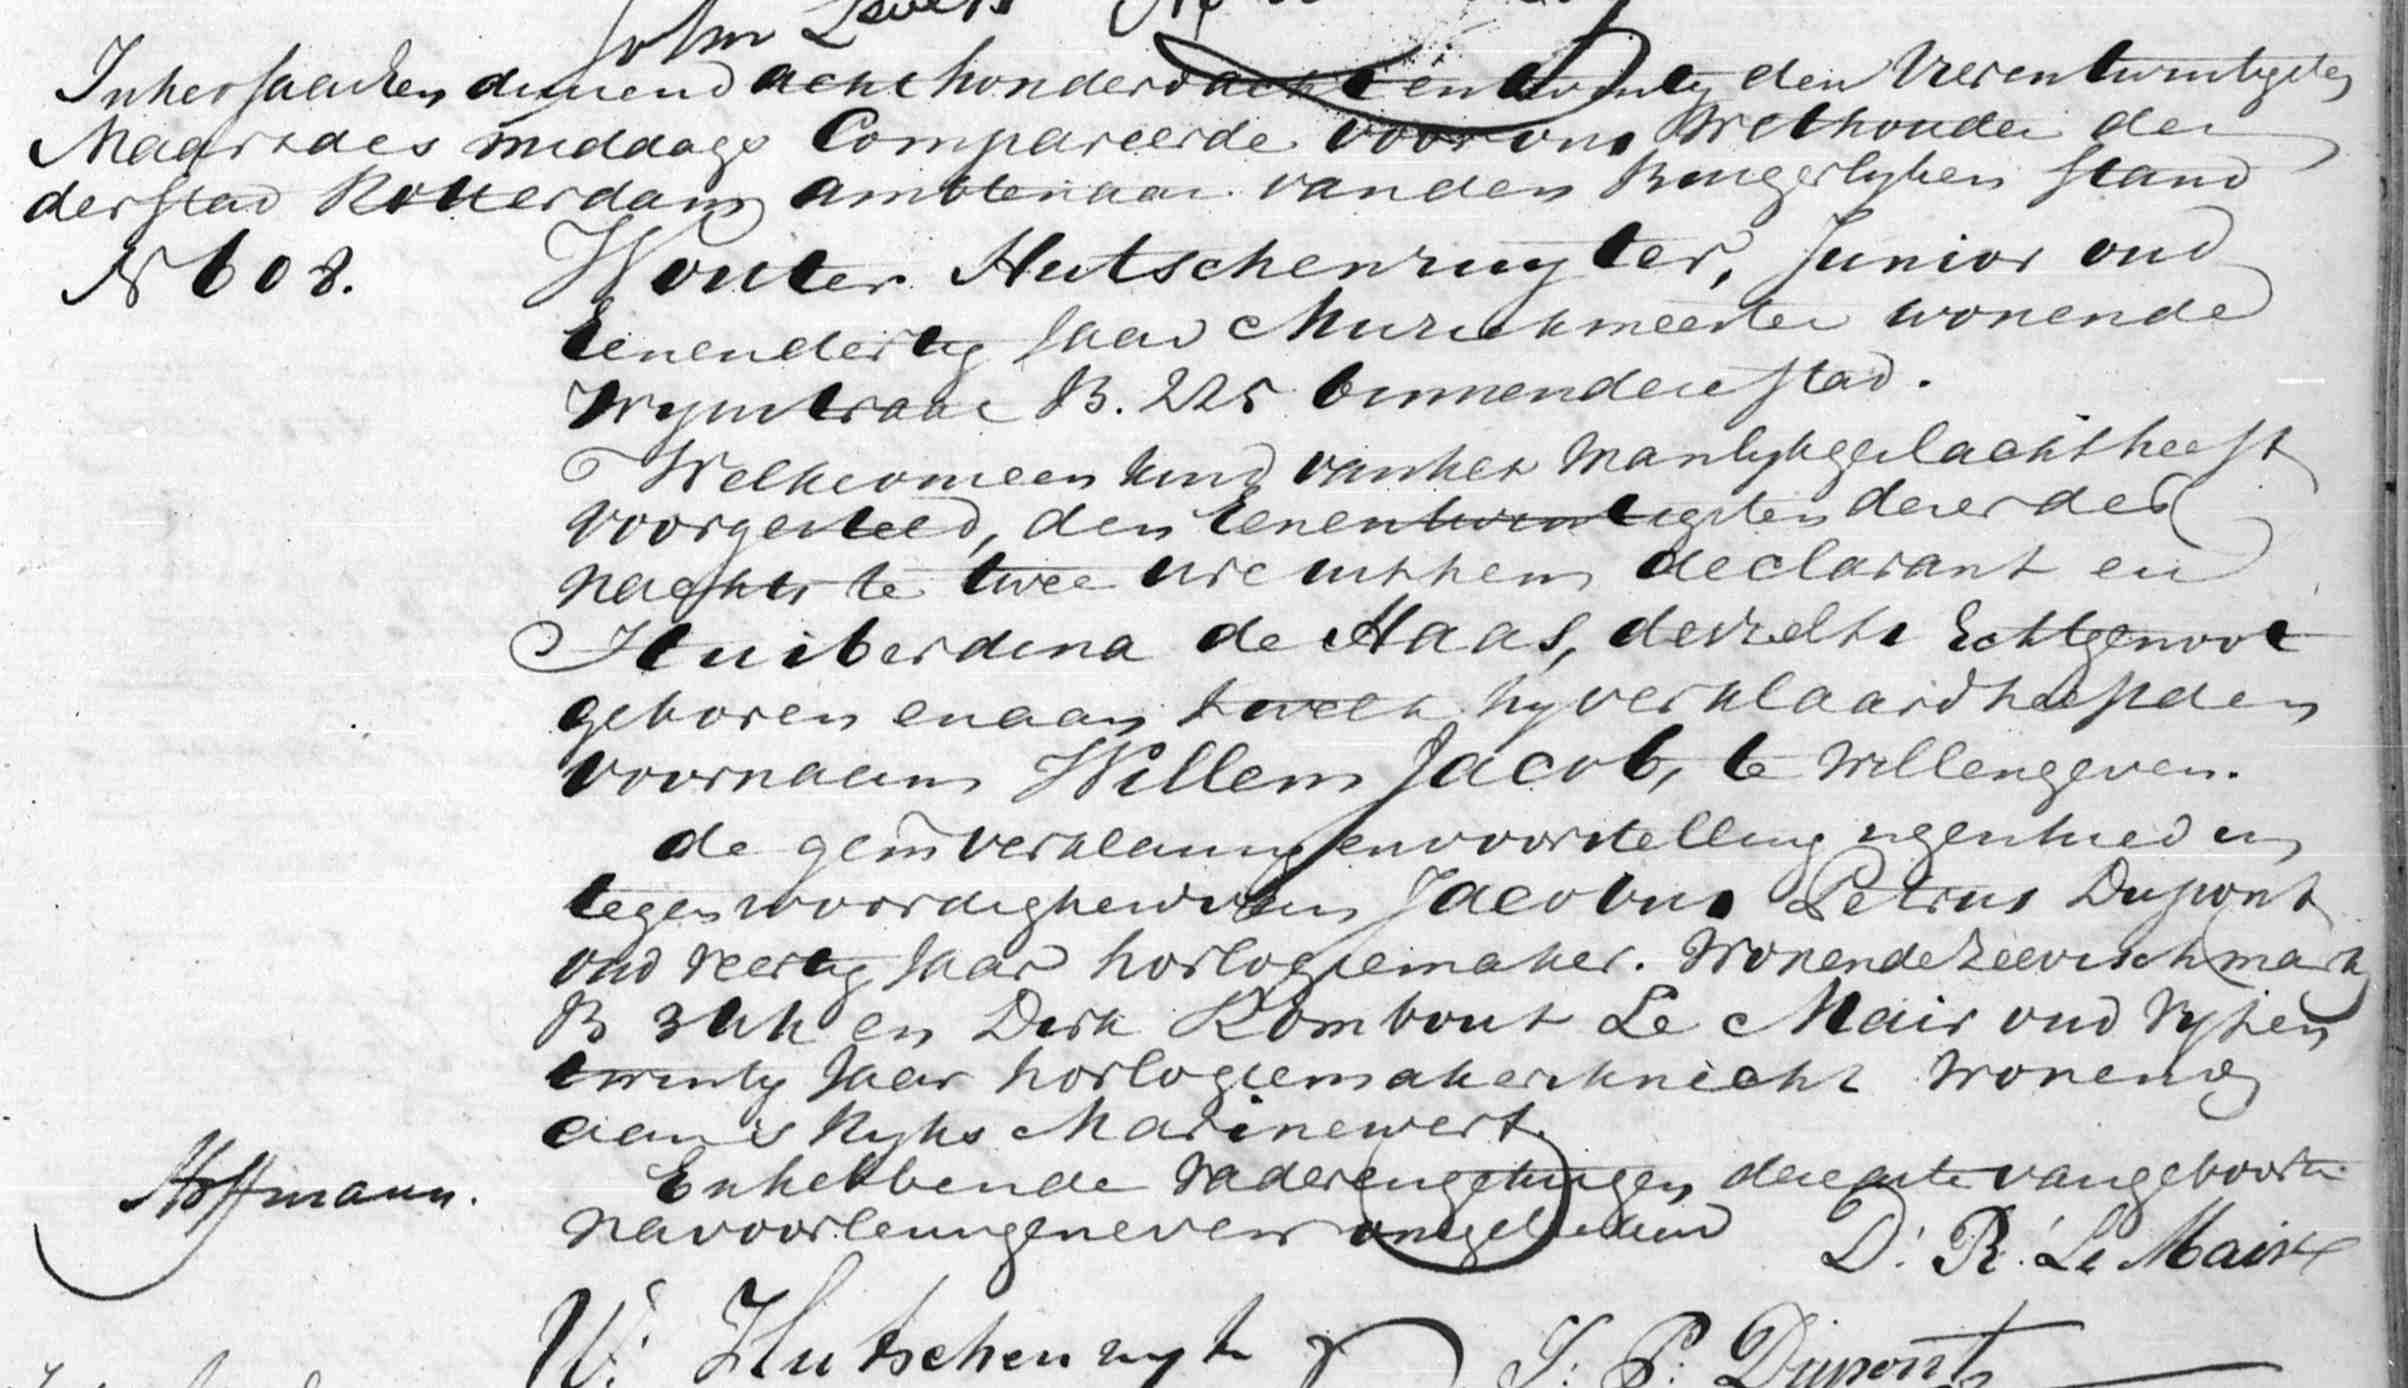 John
In het jaar een duizend acht honderd acht en twintig den Vierentwintigsten
Maart des middags Compareerde voor ons Wethouder der
der stad Rotterdam ambtenaar van den Burgerlyken stand
N 608.
Wouter Hutschenruyter, Junior oud
Eenendertig Jaar Muziekmeester wonende
Wynstraat B. 225 binnen deze stad.
Welke ons een kind van het Manlyk geslacht heeft
voorgesteld, den Eenentwintigsten dezer des
nachts te twee ure uit hem declarant en
Huiberdina de Haas, deszelfs Echtgenoot
geboren en aan twelk hy verklaard heeft den
voornaam Willem Jacob, te willen geven.
de gem verklaring en voorstelling is geschied in
tegenwoordigheid van Jacobus Petrus Dupont
oud veertig Jaar horlogiemaker. Wonende Zeevischmarkt
B en Dirk Rombout Le Mair oud vyf en
twintig Jaar horlogiemakersknecht Wonende
aan s Ryks Marinewerf.
En hebbende vader en getuigen deze acte van geboorte
na voorlezing nevens ons geteekend
Hoffmann.
D. R. Le Maire
W. Hutschenruyter
J. P. Dupont